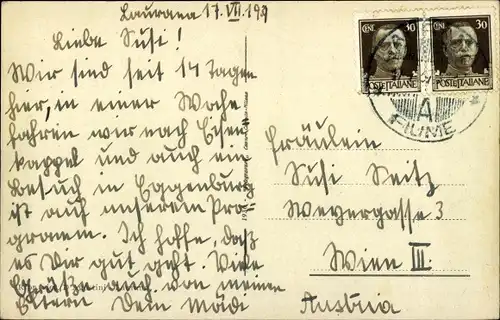 Laurana 17.VII.19
Liebe Susi!
Wir sind seit 14 Tagen
hier, in einer Woche
fahren wir nach Eisen
kappel und auch ein
Besuch in Eggenburg
ist auf unserem Pro-
gramm. Ich hoffe, daß
es Dir gut geht. Viele
Grüße auch von meinen
Eltern Dein Mädi
CENT. 30
POSTE ITALIANE
CENT. 30
POSTE ITALIANE
A
FIUME
Fräulein
Susi Seitz
Weyergasse 3
Wien III
Austria